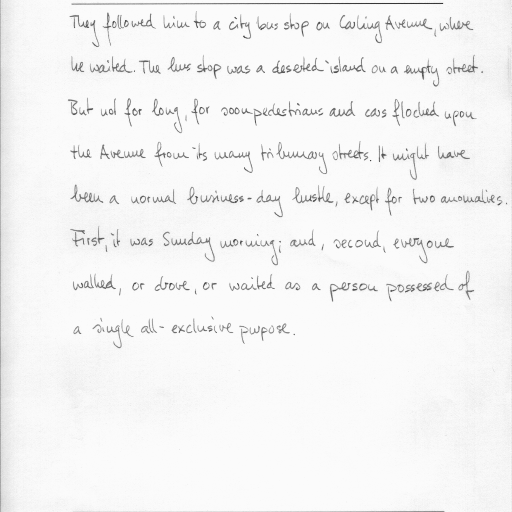 They followed him to a city bus stop on Carling Avenue, where
he waited. The bus stop was a deserted island on a empty street.
But not for long, for soon pedestrians and cars flocked upon
the Avenue from its many tributary streets. It might have
been a normal business-day bustle, except for two anomalies.
First, it was Sunday morning; and, second, everyone
walked, or drove, or waited as a person possessed of
a single all-exclusive purpose.